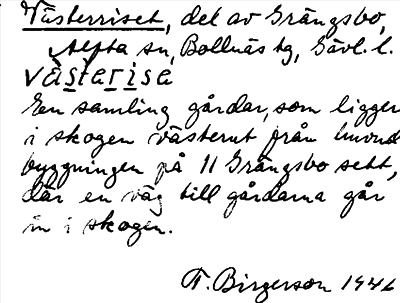 Västerriset, del av Grängsbo,
Alfta sn, Bollnäs tg, Gävl. l.
västerise
En samling gårdar, som ligger
i skogen västerut från huvud
byggningen på 11 Grängsbo sett,
där en väg till gårdarna går
in i skogen.
F. Birgerson 1946